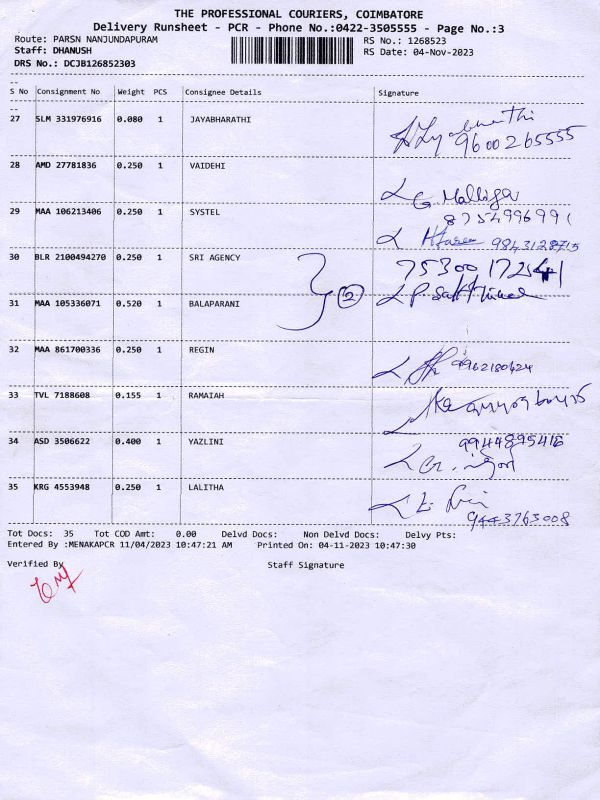 THE PROFESSIONAL COURIERS, COIMBATORE
Delivery Runsheet - PCR - Phone No.:0422-3505555 - Page No.:3
Route: PARSN NANJUNDAPURAM RS No.: 1268523
Staff: DHANUSH RS Date: 04-Nov-2023
DRS No.: DCJB126852303
S No Consignment No Weight PCS Consignee Details Signature
27 SLM 331976916 0.080 1 JAYABHARATHI
9600265555
28 AMD 27781836 0.250 1 VAIDEHI
G Malliga
8754996991
29 MAA 106213406 0.250 1 SYSTEL
9843128715
30 BLR 2100494270 0.250 1 SRI AGENCY
7530017241
2
31 MAA 105336071 0.520 1 BALAPARANI
32 MAA 861700336 0.250 1 REGIN
9962180624
33 TVL 7188608 0.155 1 RAMAIAH
34 ASD 3506622 0.400 1 YAZLINI
9944895416
35 KRG 4553948 0.250 1 LALITHA
9443763008
Tot Docs: 35 Tot COD Amt: 0.00 Delvd Docs: Non Delvd Docs: Delvy Pts:
Entered By :MENAKAPCR 11/04/2023 10:47:21 AM Printed On: 04-11-2023 10:47:30
Verified By Staff Signature